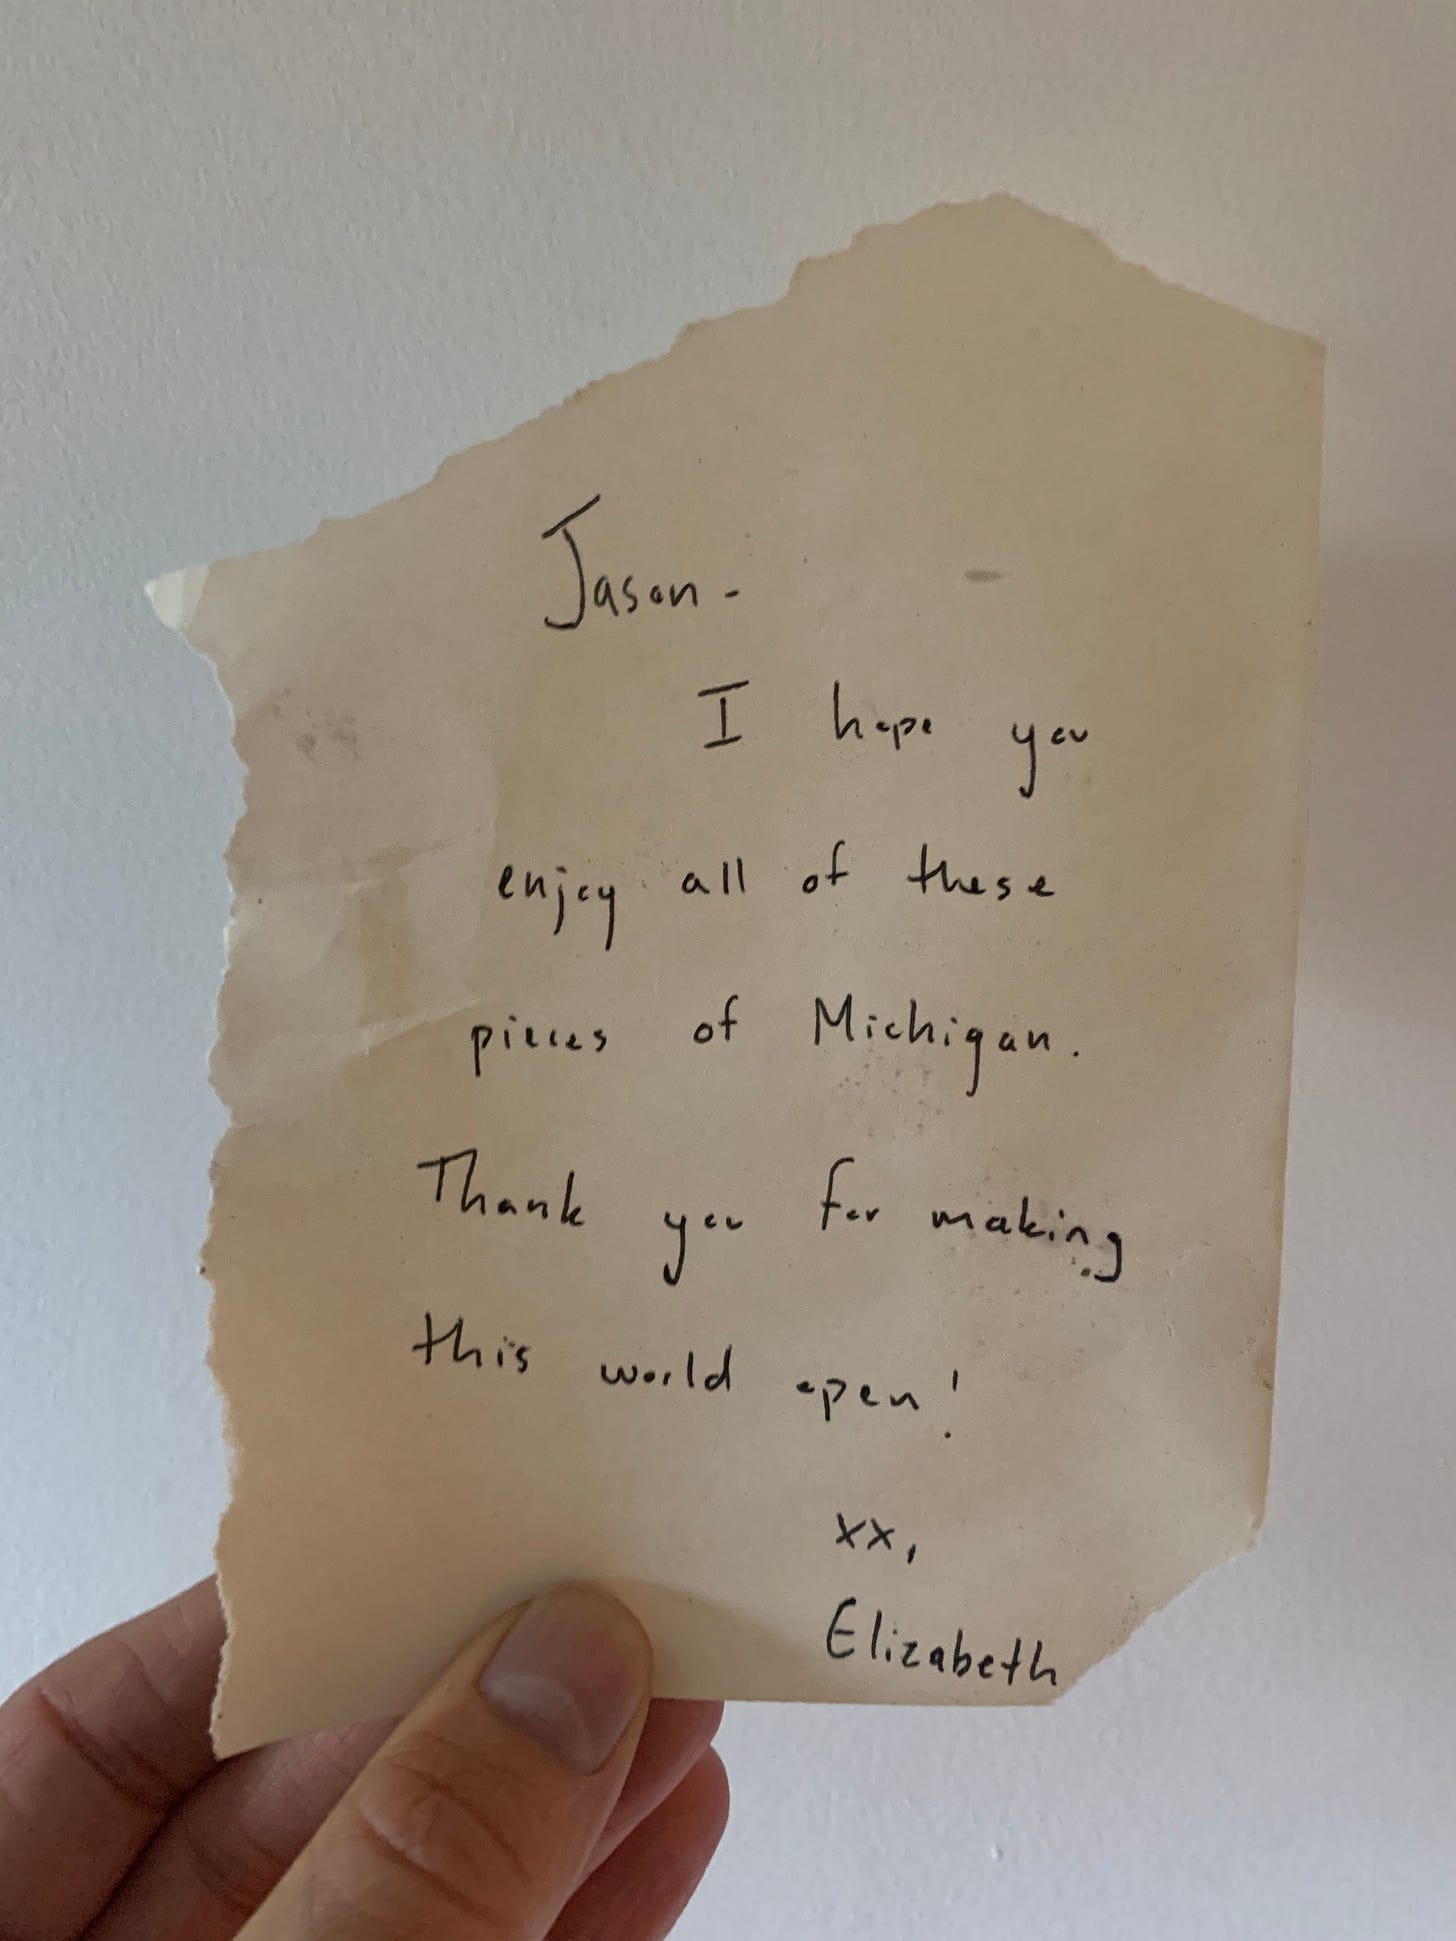 Jason-
I hope you
enjoy all of these
pieces of Michigan.
Thank you for making
this world open!
xx,
Elizabeth